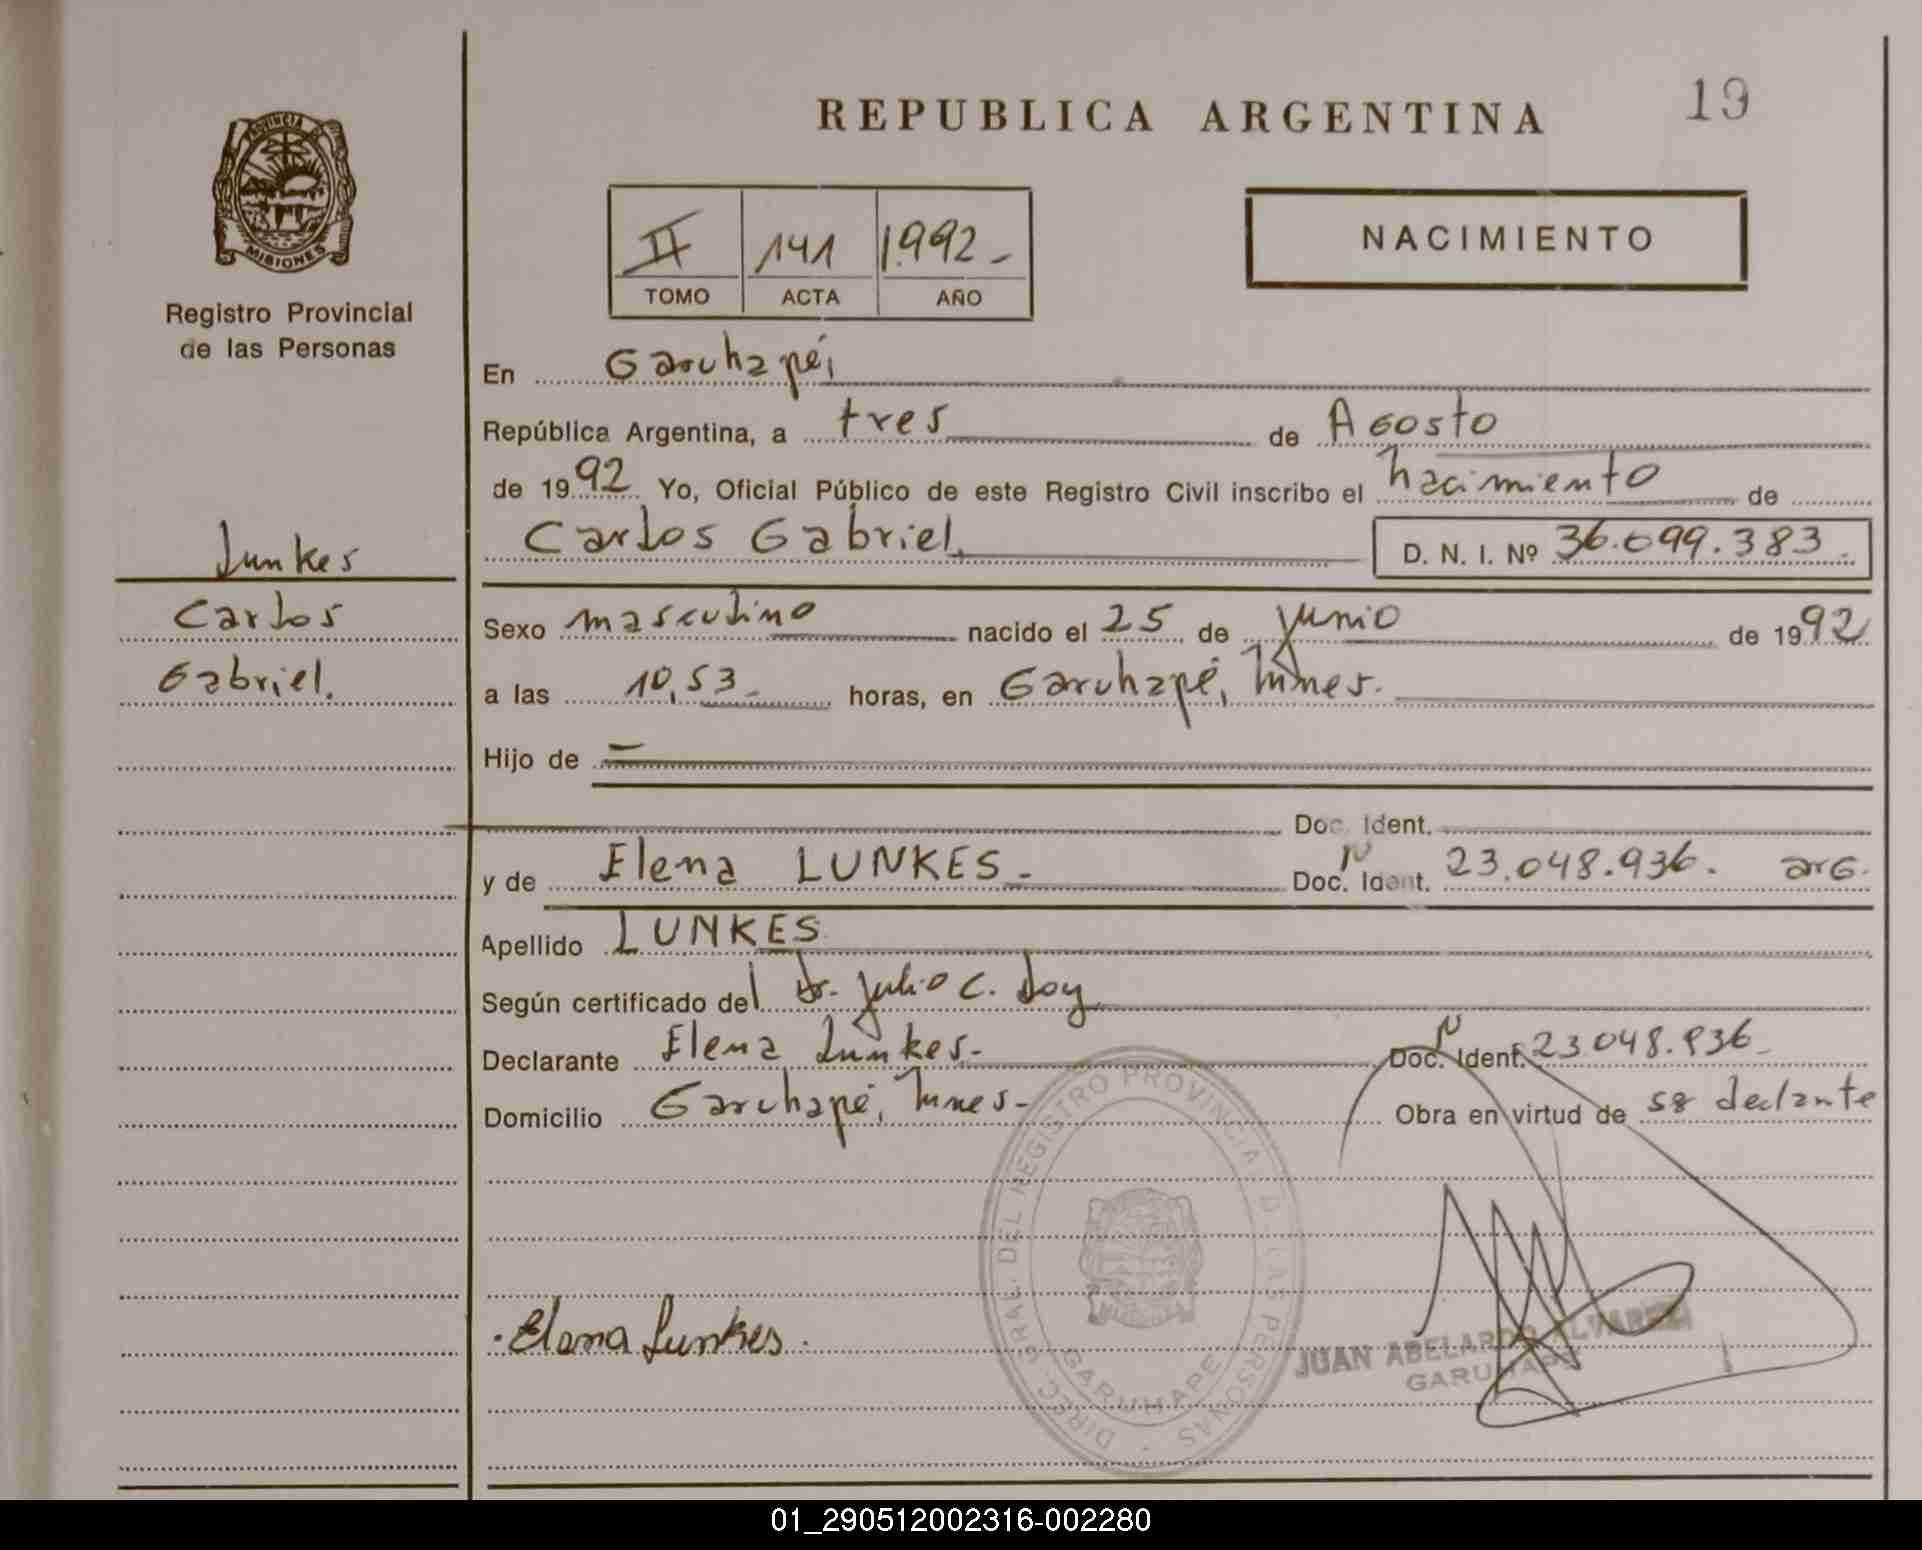 REPUBLICA ARGENTINA
19
PROVINCIA DE
MISIONES
Registro Provincial
de las Personas
II 141 1.992.-
TOMO ACTA AÑO
NACIMIENTO
En Garuhapé,
República Argentina, a tres de Agosto
de 1992 Yo, Oficial Público de este Registro Civil inscribo el nacimiento de
Carlos Gabriel. D. N. I. Nº 36.099.383.
Lunkes
Carlos
Gabriel.
Sexo masculino nacido el 25 de junio de 1992
a las 10,53 horas, en Garuhapé, Mnes.
Hijo de
Doc. Ident.
y de Elena LUNKES.- Doc. Ident. N 23.048.936. arg.
Apellido LUNKES
Según certificado del Dr. Julio C.
Declarante Elena Lunkes.- Doc. Ident. N 23.048.936
Domicilio Garuhapé, Mnes.- Obra en virtud de ser declante
Elena Lunkes.
DIREC. GRAL. DEL REGISTRO PROVINCIAL D LAS PERSONAS
GARUHAPE
JUAN ABELARDO ALVAREZ
GARUHAPE
01_290512002316-002280